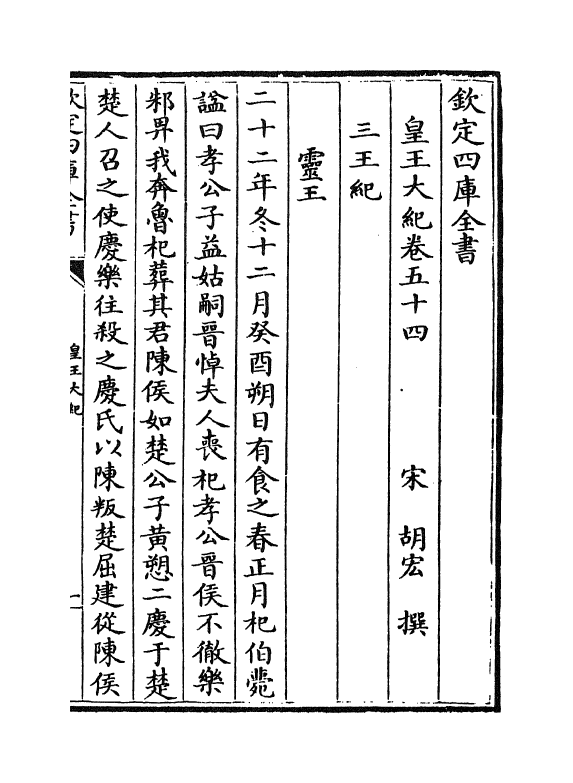 欽定四庫全書
皇王大紀卷五十四　宋　胡宏　撰
三王紀
靈王
二十二年冬十二月癸酉朔日有食之春正月杞伯薨
諡曰孝公子益姑嗣晉悼夫人喪杞孝公晉侯不徹樂
邾畀我奔魯杞葬其君陳侯如楚公子黃愬二慶于楚
楚人召之使慶樂往殺之慶氏以陳叛楚屈建從陳侯
欽定四庫全書
皇王大紀
一